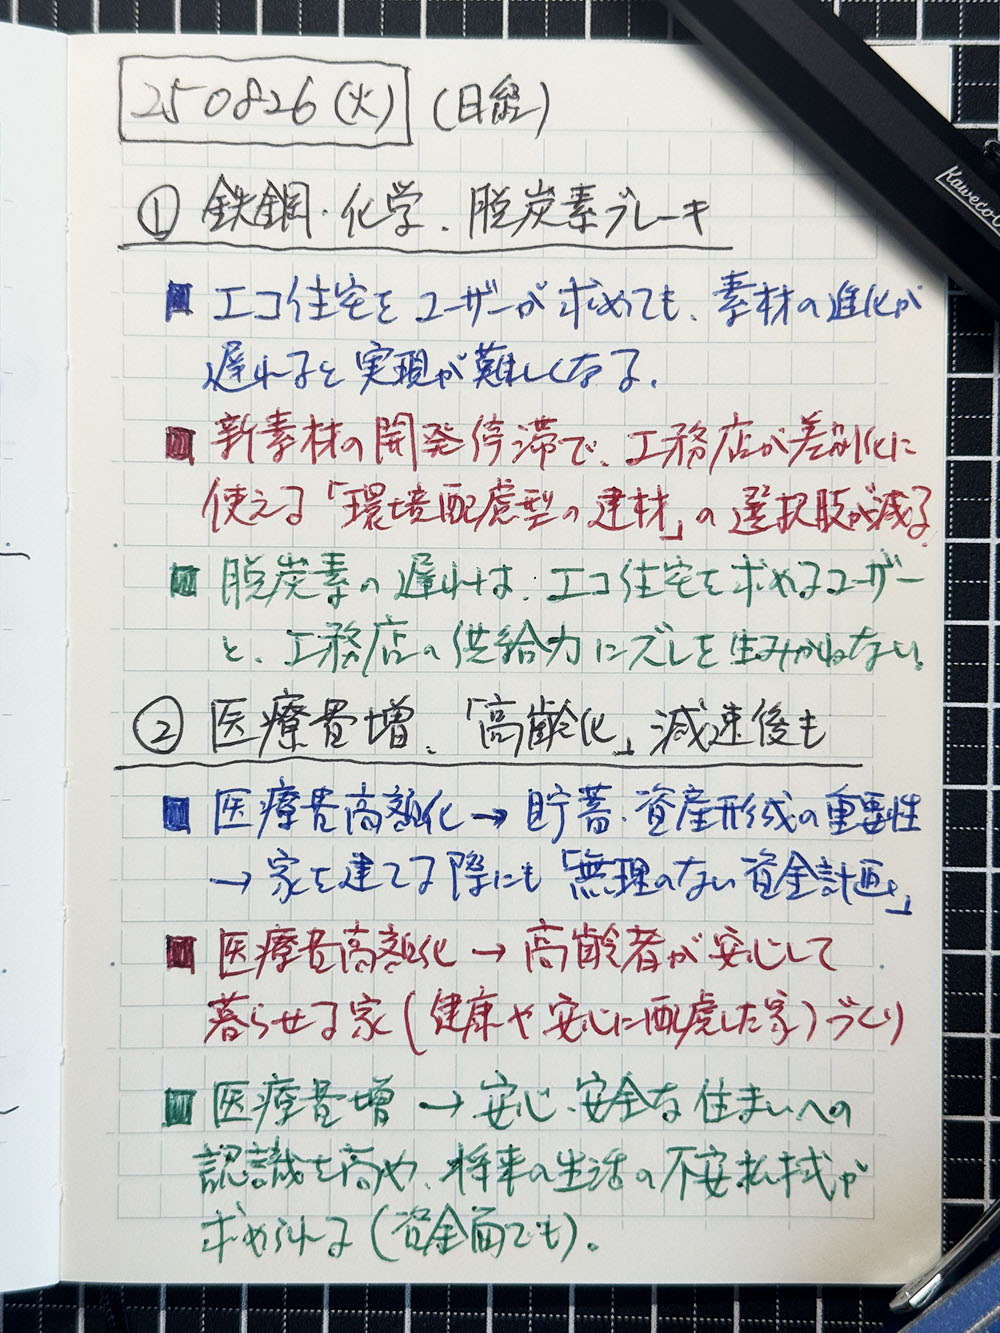 250826(火) (日経)
① 鉄鋼・化学、脱炭素ブレーキ
■ エコ住宅をユーザーが求めても、素材の進化が
遅れると実現が難しくなる。
■ 新素材の開発停滞で、工務店が差別化に
使える「環境配慮型の建材」の選択肢が減る。
■ 脱炭素の遅れは、エコ住宅を求めるユーザー
と、工務店の供給力にズレを生みかねない。
② 医療費増、「高齢化」減速後も
■ 医療費高額化→貯蓄・資産形成の重要性
→家を建てる際にも「無理のない資金計画を」
■ 医療費高額化→高齢者が安心して
暮らせる家(健康や安心に配慮した家)づくり
■ 医療費増→安心・安全な住まいへの
認識を高め、将来の生活の不安払拭が
求められる(資金面でも)。
Kaweco